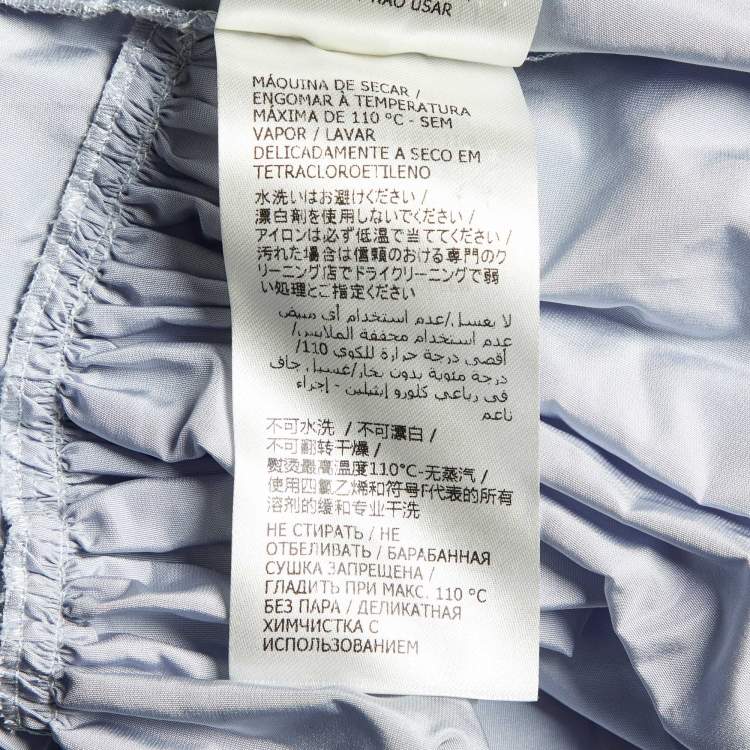 NÃO USAR
MÁQUINA DE SECAR /
ENGOMAR À TEMPERATURA
MÁXIMA DE 110 ºC - SEM
VAPOR / LAVAR
DELICADAMENTE A SECO EM
TETRACLOROETILENO
水洗いはお避けください /
漂白剤を使用しないでください /
アイロンは必ず低温で当ててください /
汚れた場合は信頼のおける専門のク
リーニング店でドライクリーニングで弱
い処理とご指定ください
لا يغسل/عدم استخدام أي مبيض
/عدم استخدام مجففة الملابس
/أقصى درجة حرارة للكوي 110
درجة مئوية بدون بخار/غسيل جاف
في رباعي كلورو إيثيلين - إجراء
ناعم
不可水洗 / 不可漂白 /
不可翻转干燥 /
熨烫最高温度110°C-无蒸汽 /
使用四氯乙烯和符号F代表的所有
溶剂的缓和专业干洗
НЕ СТИРАТЬ / НЕ
ОТБЕЛИВАТЬ / БАРАБАННАЯ
СУШКА ЗАПРЕЩЕНА /
ГЛАДИТЬ ПРИ МАКС. 110 °C
БЕЗ ПАРА / ДЕЛИКАТНАЯ
ХИМЧИСТКА С
ИСПОЛЬЗОВАНИЕМ